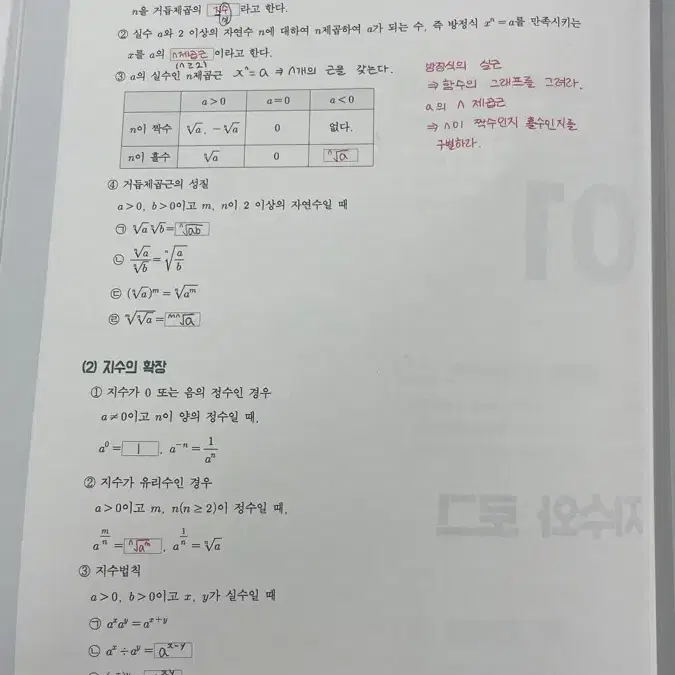 n을 거듭제곱의 지수 라고 한다.
② 실수 a와 2 이상의 자연수 n에 대하여 n제곱하여 a가 되는 수, 즉 방정식 xⁿ=a를 만족시키는
x를 a의 n제곱근 이라고 한다.
(n≥2)
③ a의 실수인 n제곱근 xⁿ=a ⇒ n개의 근를 갖는다.
방정식의 실근
⇒ 함수의 그래프를 그려라.
a의 n 제곱근
⇒ n이 짝수인지 홀수인지를
구별하라.
a>0 a=0 a<0
n이 짝수 ⁿ√a, -ⁿ√a 0 없다.
n이 홀수 ⁿ√a 0 ⁿ√a
④ 거듭제곱근의 성질
a>0, b>0이고 m, n이 2 이상의 자연수일 때
㉠ ⁿ√a ⁿ√b = ⁿ√ab
㉡ ⁿ√a/ⁿ√b = ⁿ√(a/b)
㉢ (ⁿ√a)ᵐ = ⁿ√aᵐ
㉣ ᵐ√ⁿ√a = ᵐⁿ√a
(2) 지수의 확장
① 지수가 0 또는 음의 정수인 경우
a≠0이고 n이 양의 정수일 때,
a⁰= 1 , a⁻ⁿ=1/aⁿ
② 지수가 유리수인 경우
a>0이고 m, n(n≥2)이 정수일 때,
a^(m/n) = ⁿ√aᵐ , a^(1/n) = ⁿ√a
③ 지수법칙
a>0, b>0이고 x, y가 실수일 때
㉠ aˣaʸ=aˣ⁺ʸ
㉡ aˣ÷aʸ= aˣ⁻ʸ
01
지수와 로그